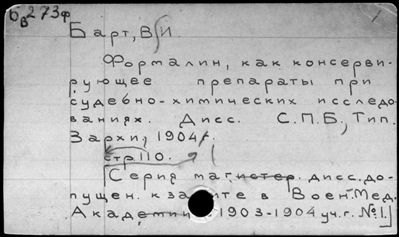 6в 273ф
Барт, В И.
Формалин, как консерви-
рующее препараты при
судебно-химических исследо-
ваниях. Дисс. С.П.Б., Тип.
Зархи, 1904 г.
стр 110.
[Серия магистер. дисс. до-
пущен. к защите в Воен.-Мед.
Академии 1903-1904 уч. г. №1.]